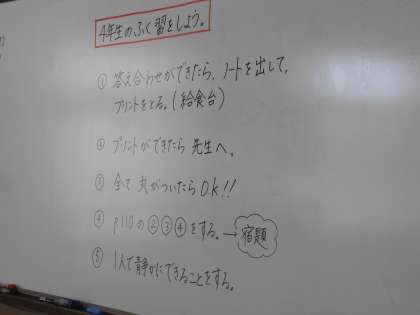 4年生のふく習をしよう。
① 答え合わせができたら、ノートを出して、
プリントをとる。(給食台)
② プリントができたら 先生へ。
③ 全て 丸がついたら OK!!
④ p110の②③④をする。→宿題
⑤ 1人で静かにできることをする。